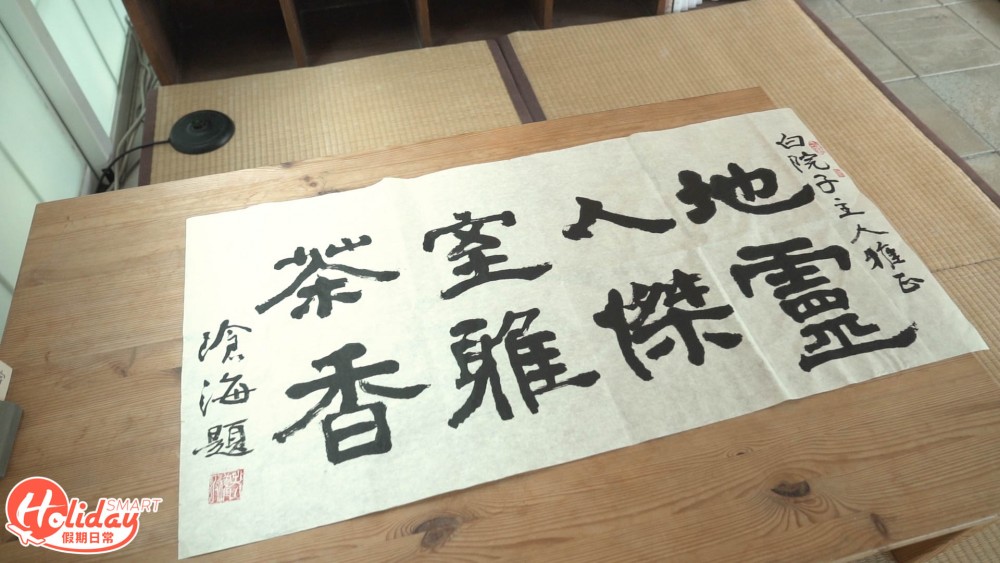 白院子主人雅正
地靈
人傑
室雅
茶香
滄海題
Holiday
SMART
假期日常